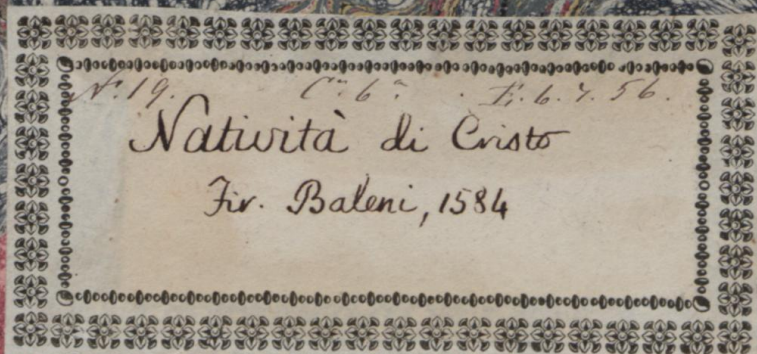 N.° 19. C.ª 6.ª E. 6. 7. 56.
Natività di Cristo
Fir. Baleni, 1584